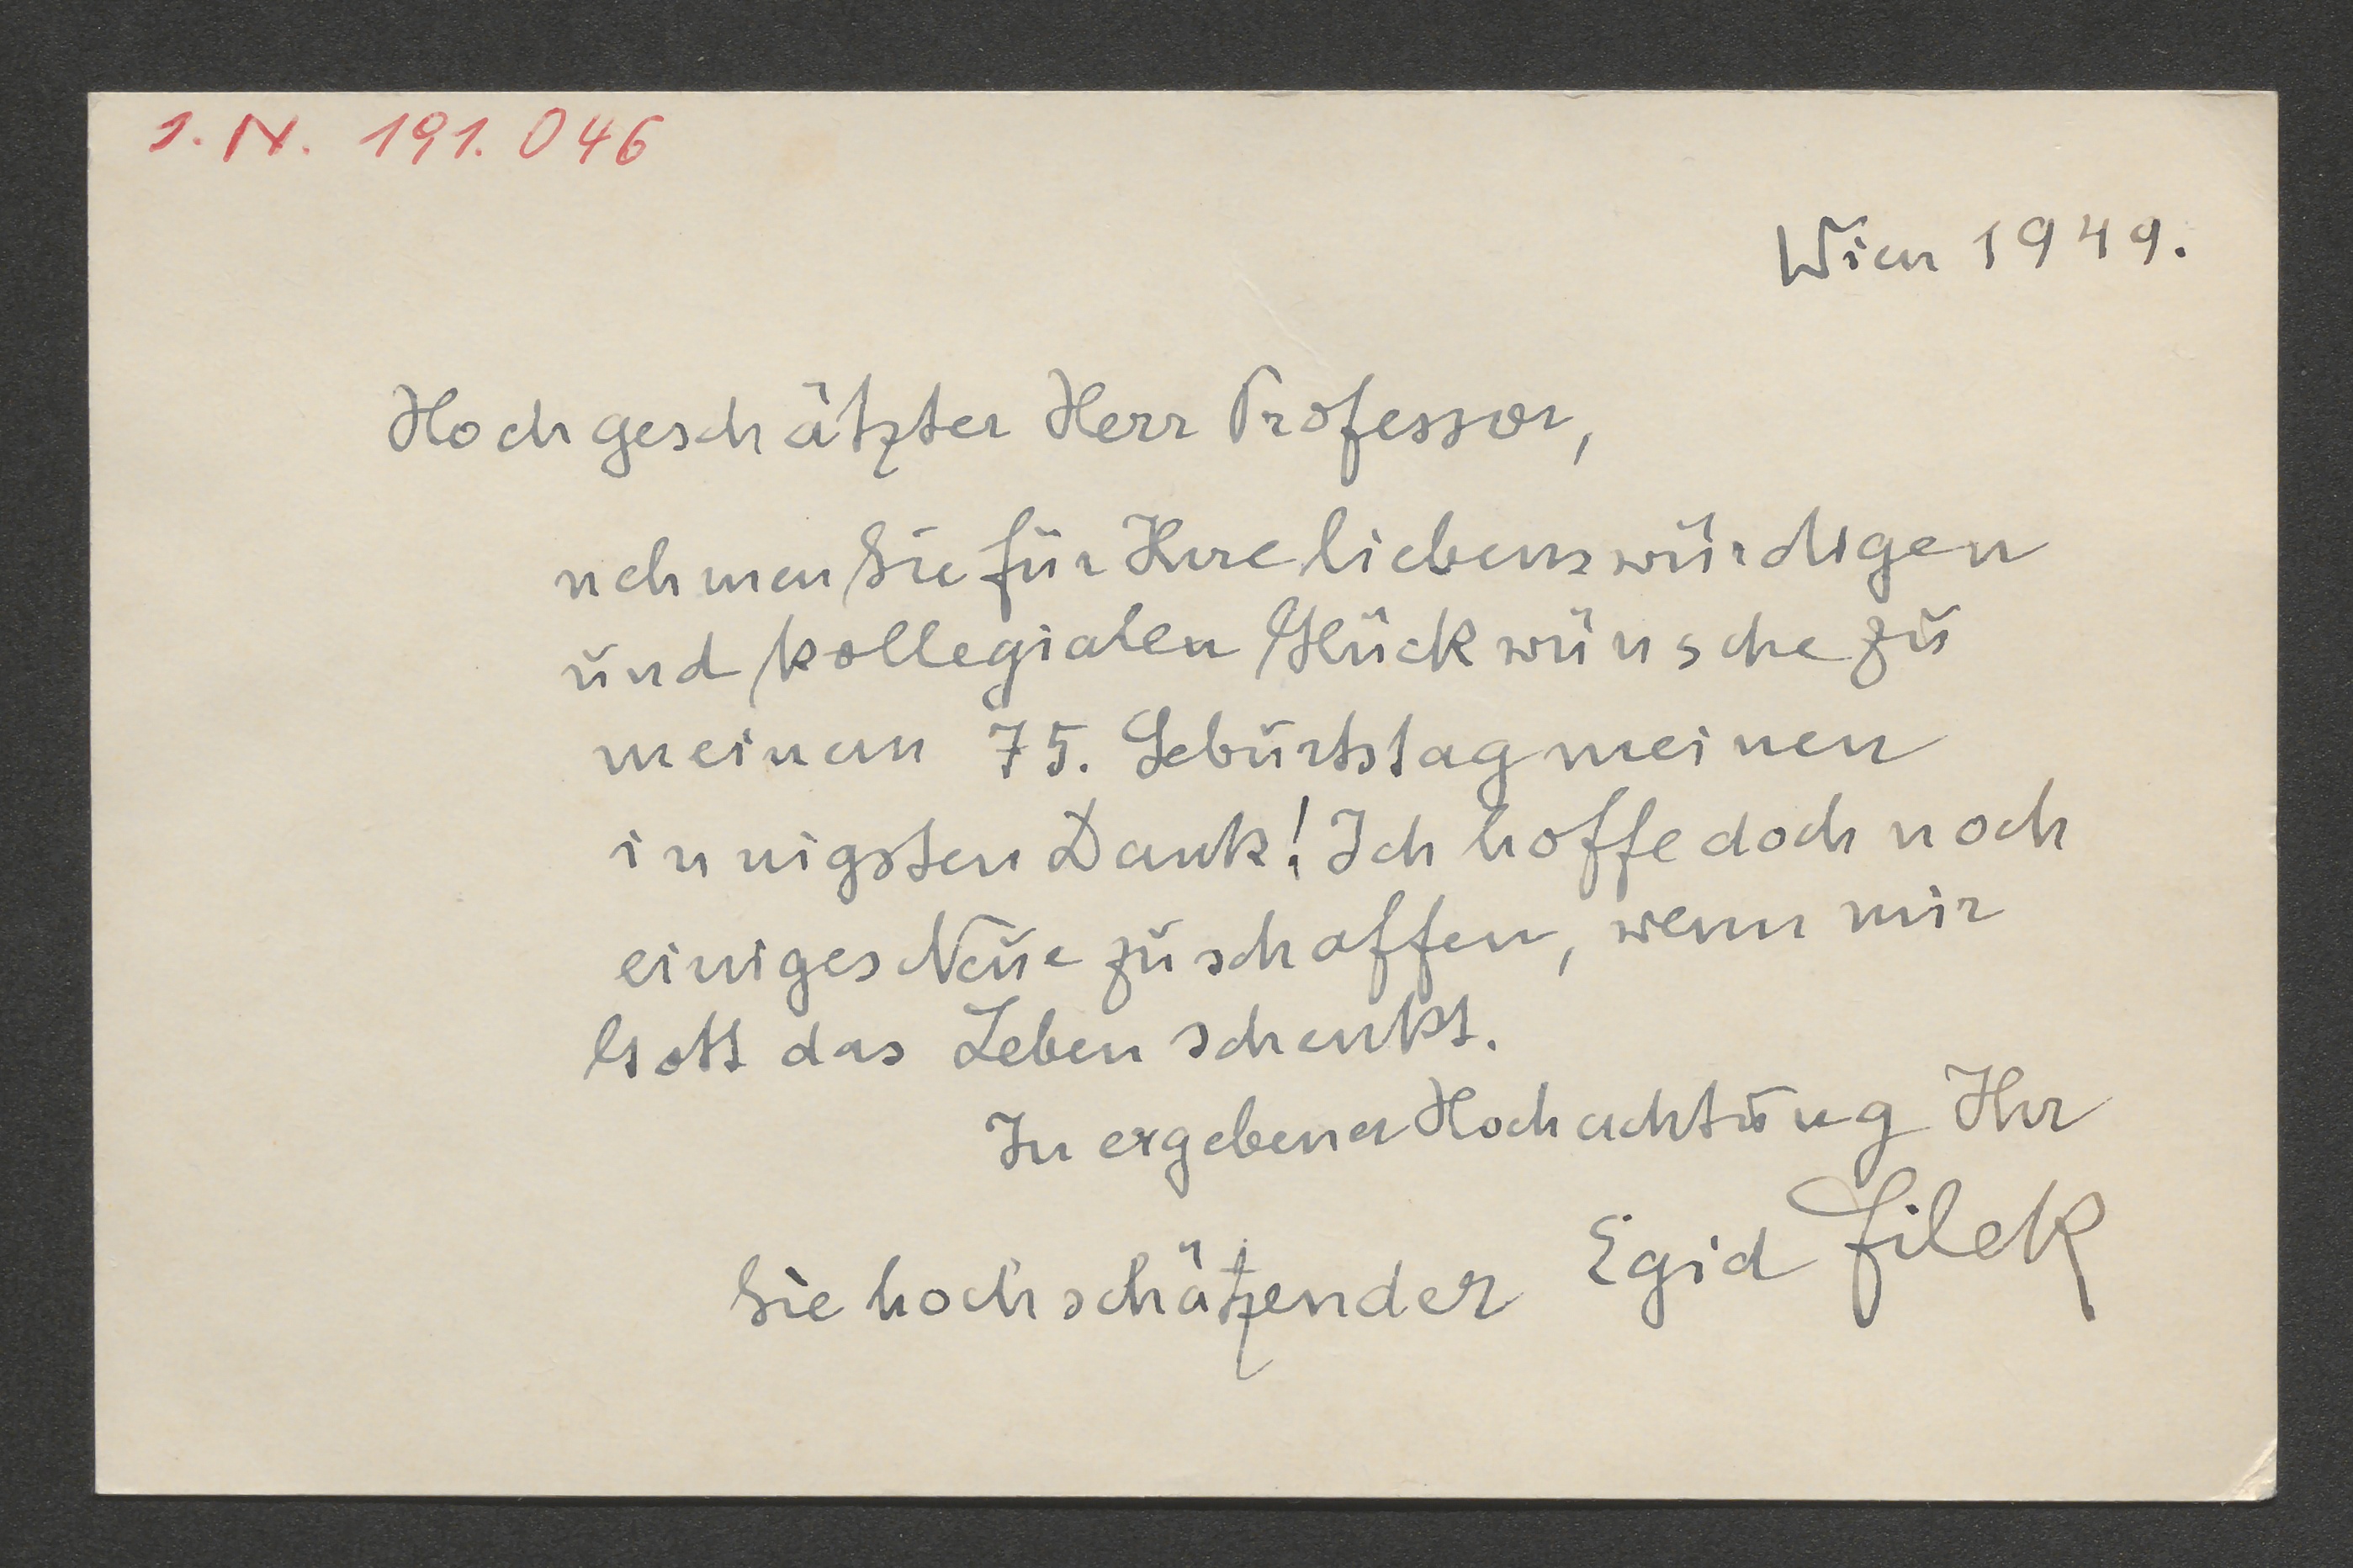 I. N. 191.046
Wien 1949.
Hochgeschätzter Herr Professor,
nehmen Sie für Ihre liebenswürdigen
und kollegialen Glückwünsche zu
meinem 75. Geburtstag meinen
innigsten Dank! Ich hoffe doch noch
einiges Neue zu schaffen, wenn mir
Gott das Leben schenkt.
In ergebener Hochachtung Ihr
Sie hochschätzender Egid Filek